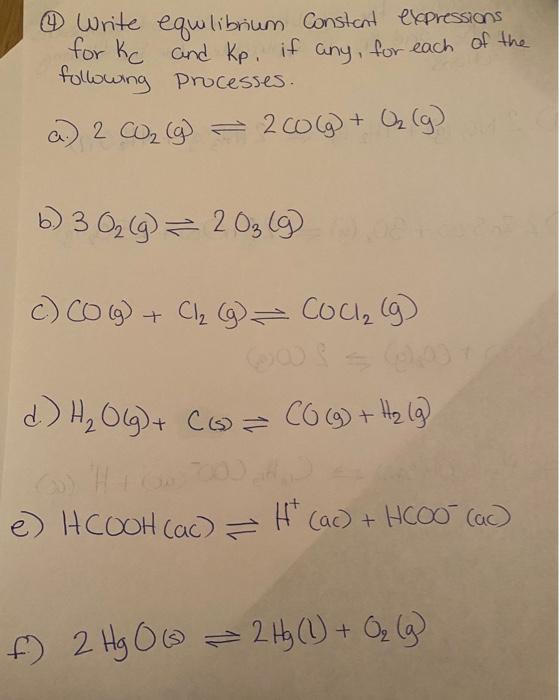 ④ Write equilibrium Constant expressions
for Kc and Kp, if any, for each of the
following processes.
a.) 2 CO₂ (g) ⇌ 2 CO(g) + O₂ (g)
b) 3 O₂ (g) ⇌ 2 O₃ (g)
c.) CO (g) + Cl₂ (g) ⇌ COCl₂ (g)
d.) H₂O(g) + C(s) ⇌ CO (g) + H₂ (g)
e) HCOOH (ac) ⇌ H⁺ (ac) + HCOO⁻ (ac)
f.) 2 HgO(s) ⇌ 2 Hg(l) + O₂ (g)